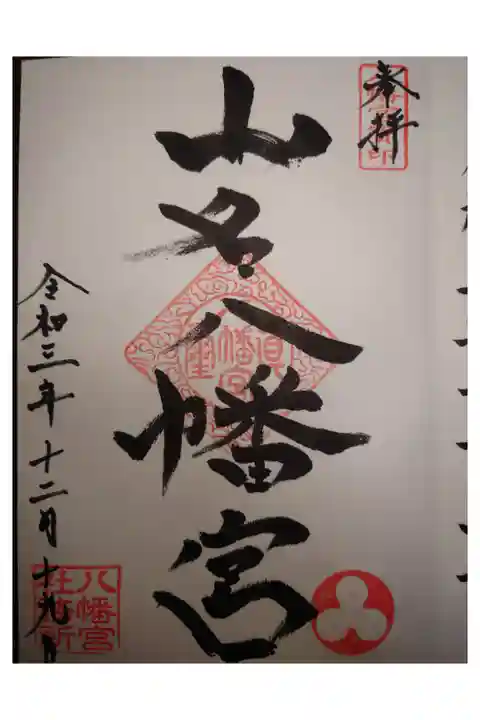 奉拝
山名八幡宮
令和三年十二月十九日
八幡宮
社務所